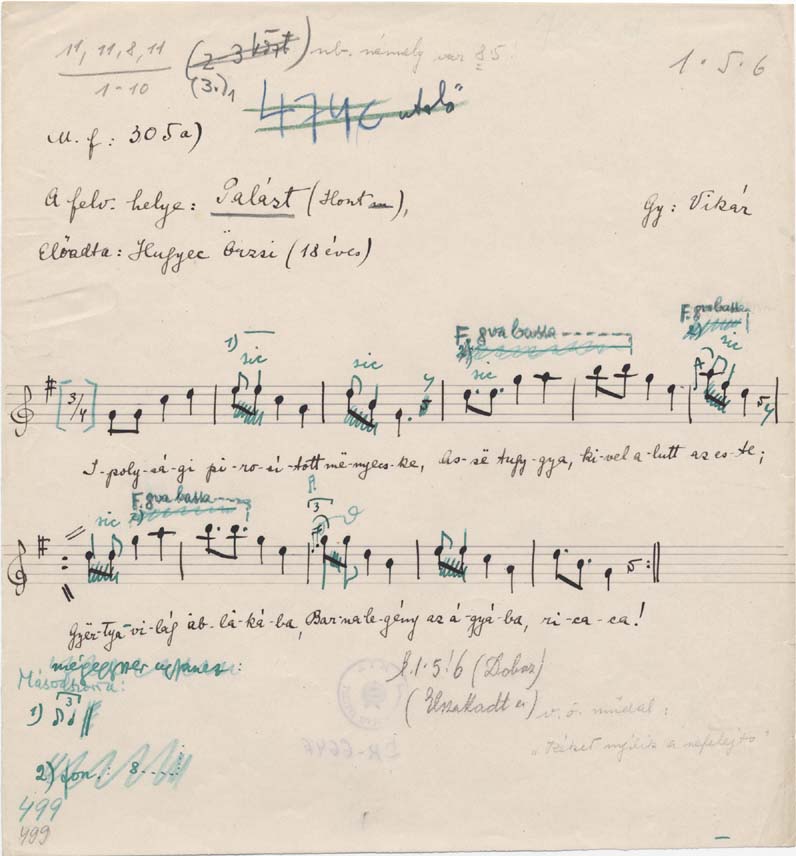 11, 11, 8, 11 (2 3 ) nb. némely var 85
1-10 (3.)1 1 . 5 . 6
474c utolsó
M. f: 305a)
A felv. helye: Palázt (Hont m), Gy: Vikár
Előadta: Hugyec Örzsi (18 éves)
F. 8va bassa F. 8va bassa
1) sic sic sic sic
[3/4]
I-poly-sá-gi pi-ro-sí-tott më-nyecs-ke, As-së tugy-gya, ki-vel a-lutt az es-te;
F. 8va bassa
sic 2) 3
Gyër-tya-vi-lág ab-lá-ká-ba, Bar-na le-gény az á-gyá-ba, ri-ca-ca!
mégegyszer ugyanez:
Másodszorra:
1) 3
l. 1.5!6 (Dobsz)
(Elszakadt a) v. ö. műdal:
„Kéket nyílik a nefelejts"
2) fon. : 8
499
499